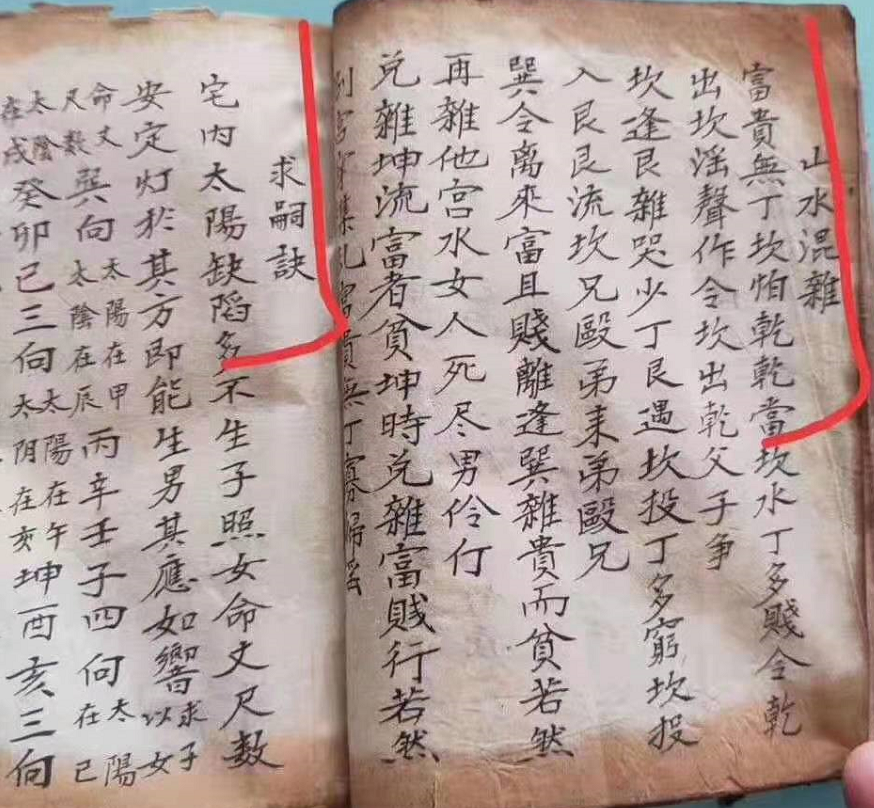 山水混雜
富貴無丁坎怕乾乾當坎水丁多賤令乾
出坎滛聲作令坎出乾父子争
坎逢艮雜哭少丁艮遇坎投丁多窮坎投
入艮艮流坎兄毆弟耒弟毆兄
巽令離來富且賤離逢巽雜貴而貧若然
再雜他宫水女人死尽男伶仃
兑雜坤流富者貧坤時兑雜富賎行若然
富貴無丁寡婦滛
求嗣訣
宅内太陽缺陷多不生子照女命丈尺数
安定灯於其方即能生男其應如響求子以女
命丈尺数巽向太陽在甲太陰在辰丙辛壬子四向太陽在巳
太陰在戌癸卯己三向太陽在午太阴在亥坤酉亥三向